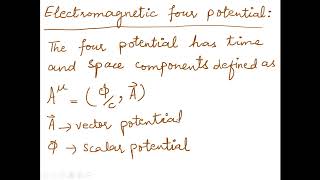 Electromagnetic four potential:
The four potential has time
and space components defined as
A^μ = (Φ/c, A⃗)
A⃗ → vector potential
Φ⃗ → scalar potential